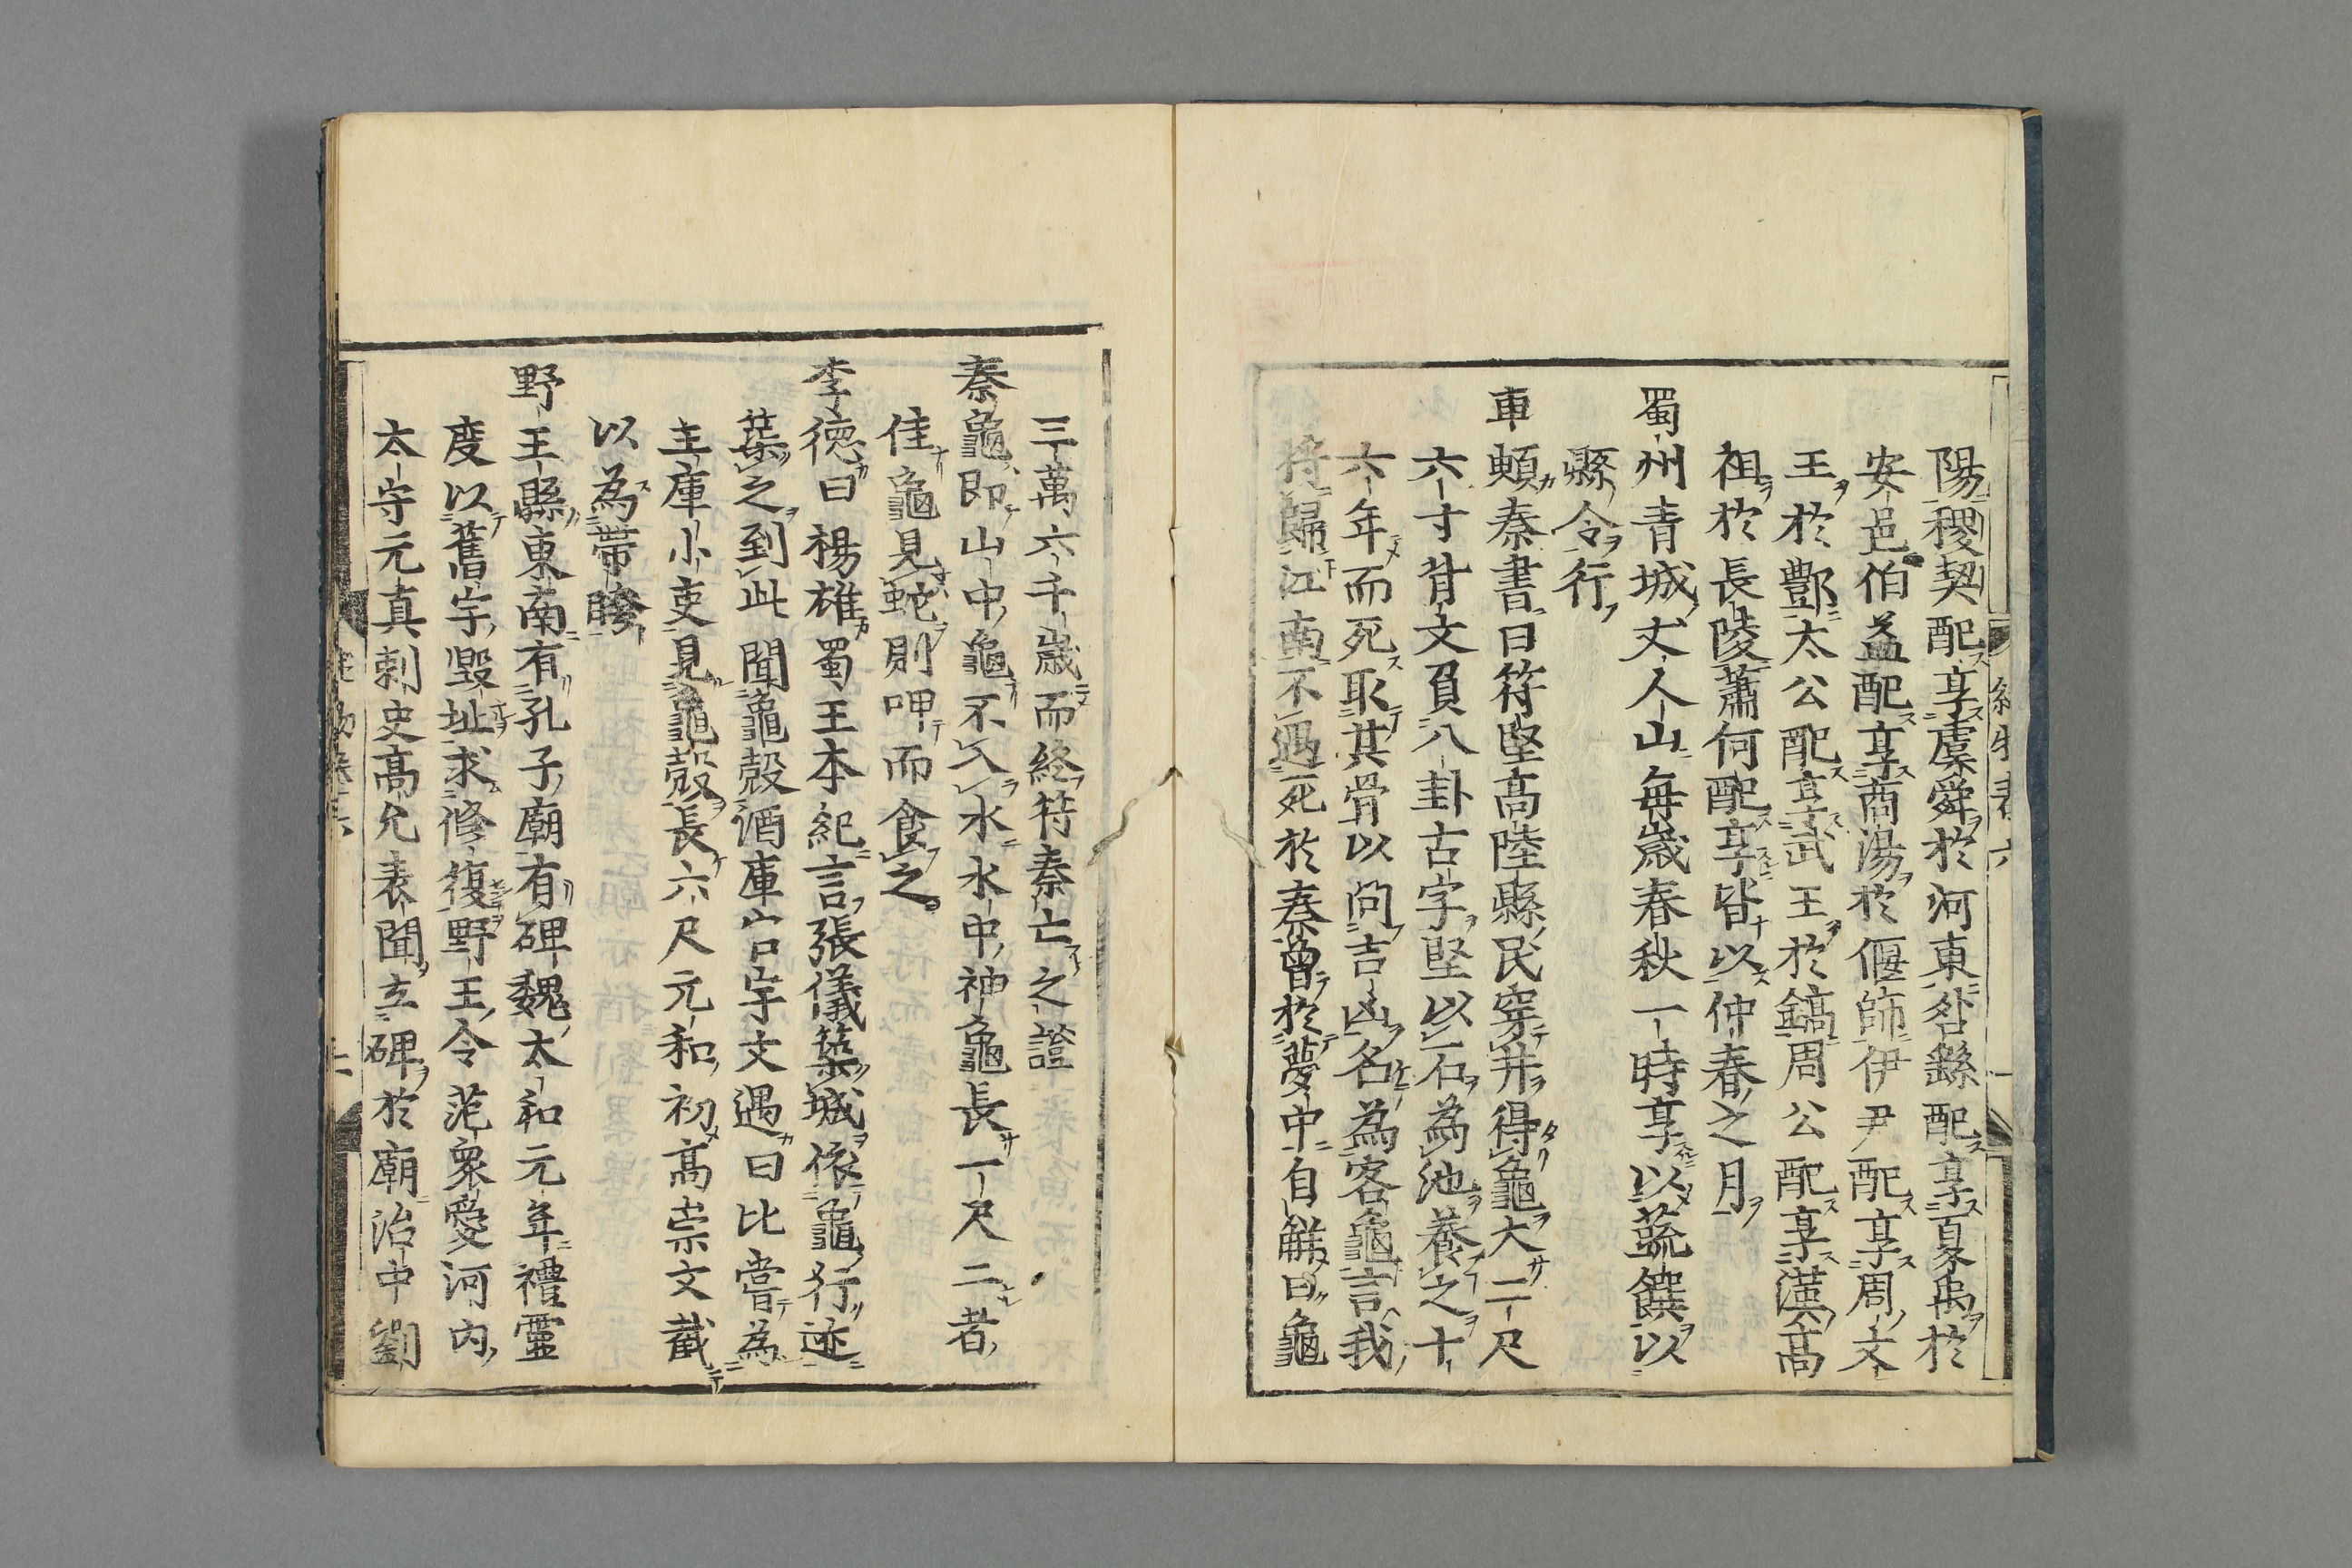 陽稷契配享虞舜於河東咎繇配享夏禹於
安邑伯益配享商湯於偃師伊尹配享周文
王於酆太公配享武王於鎬周公配享漢高
祖於長陵蕭何配享皆以仲春之月
蜀州青城丈人山每歲春秋一時享以蔬饌以
縣令行
車頻秦書曰符堅高陸縣民穿井得龜大二尺
六寸背文負八卦古字堅以石為池養之十
六年而死取其骨以問吉凶名為客龜言我
將歸江南不遇死於秦曾於夢中自解曰龜
三萬六千歲而終符秦亡之證
秦龜即山中龜不入水水中神龜長一尺二者
佳龜見蛇則呷而食之
李德曰楊雄蜀王本紀言張儀築城依龜行迹
葉之到此聞龜殼酒庫宇文遇曰比嘗為
主庫小吏見龜殼長六尺元和初高崇文截
以為帶胯
野王縣東南有孔子廟有碑魏太和元年禮靈
度以舊宇毀址求修復野王令范眾愛河內
太守元真刺史高允表聞立碑於廟治中劉